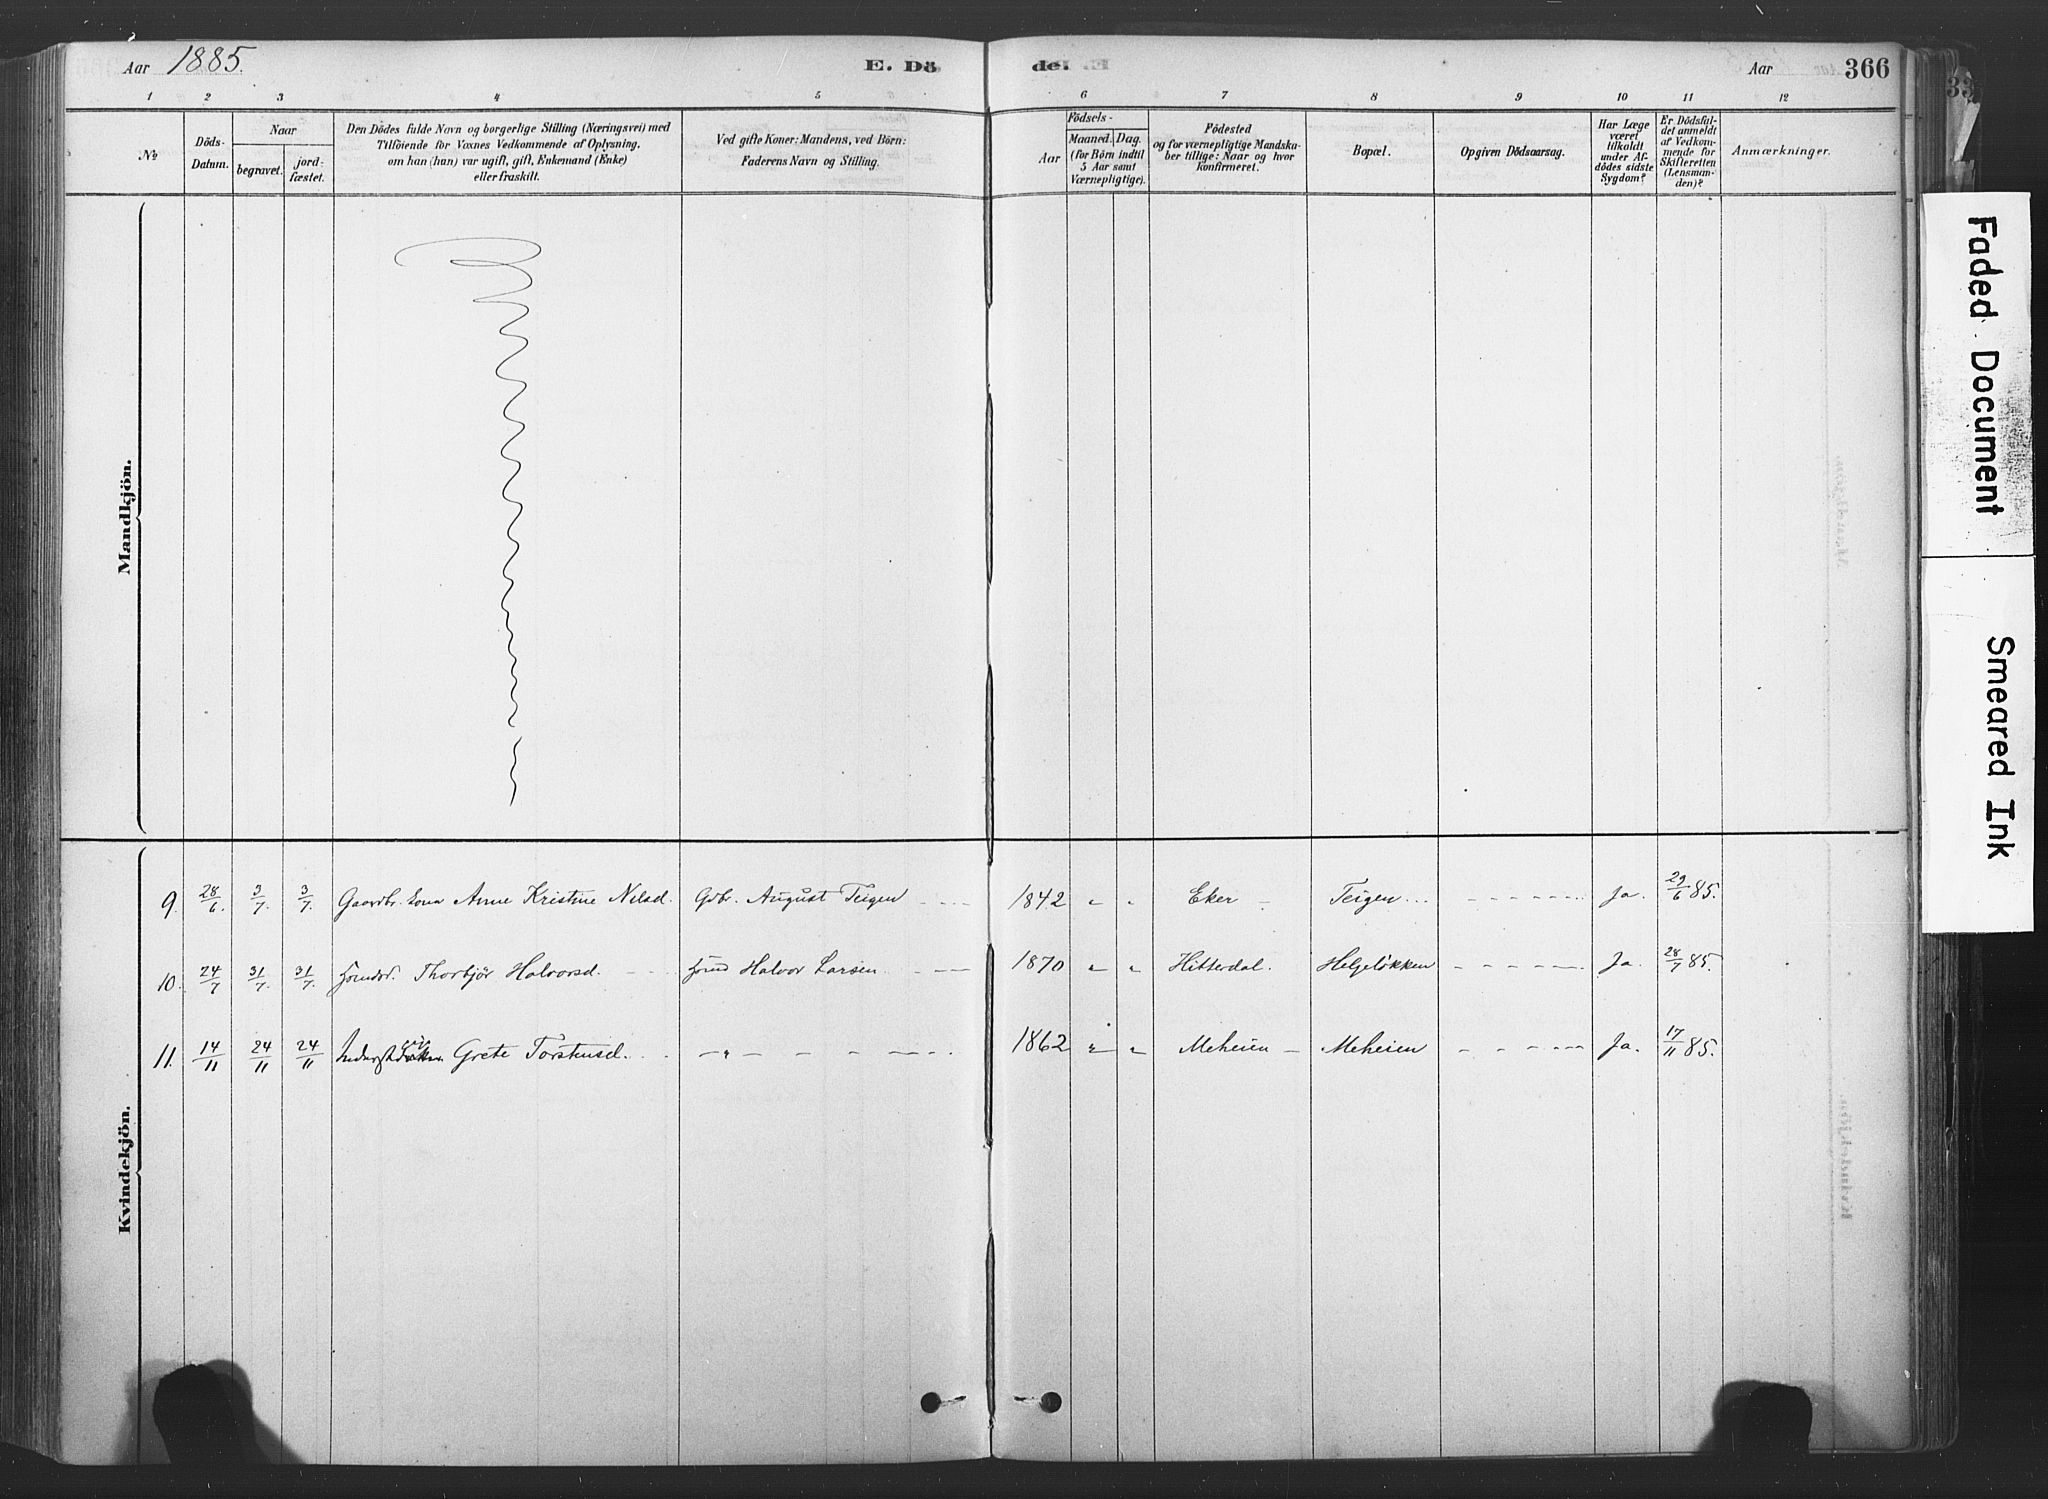 Aar 1885.
E. Dö
de.
Aar
366
1 2 3 4 5 6 7 8 9 10 11 12
№
Döds-
Datum.
Naar
begravet.
jord-
fæstet.
Den Dödes fulde Navn og borgerlige Stilling (Næringsvei) med
Tilföiende for Voxnes Vedkommende af Oplysning,
om han (hun) var ugift, gift, Enkemand (Enke)
eller fraskilt.
Ved gifte Koner: Mandens, ved Börn:
Faderens Navn og Stilling.
Födsels-
Aar
Maaned.
Dag.
(for Börn indtil
5 Aar samt
Værnepligtige).
Födested
og for værnepligtige Mandska-
ber tillige: Naar og hvor
konfirmeret.
Bopæl.
Opgiven Dödsaarsag.
Har Læge
været
tilkaldt
under Af-
dödes sidste
Sygdom?
Er Dödsfal-
det anmeldt
af Vedkom-
mende for
Skifteretten
(Lensman-
den)?
Anmærkninger.
Mandkjön.
Kvindekjön.
9. 28/6. 3/7. 3/7. Gaardbr. kona Anne Kristine Nilsd. Gdbr. August Teigen 1842 " " Eker Teigen Ja. 29/6 85.
10. 24/7 31/7. 31/7. Thorbjör Halvorsd. Halvor Larsen 1870 " " Hitterdal. Helgeløkken Ja. 28/7 85.
11. 14/11 24/11 24/11 Grete Torstensd. " 1862 " " Meheien Meheien Ja. 17/11 85.
Faded Document
Smeared Ink